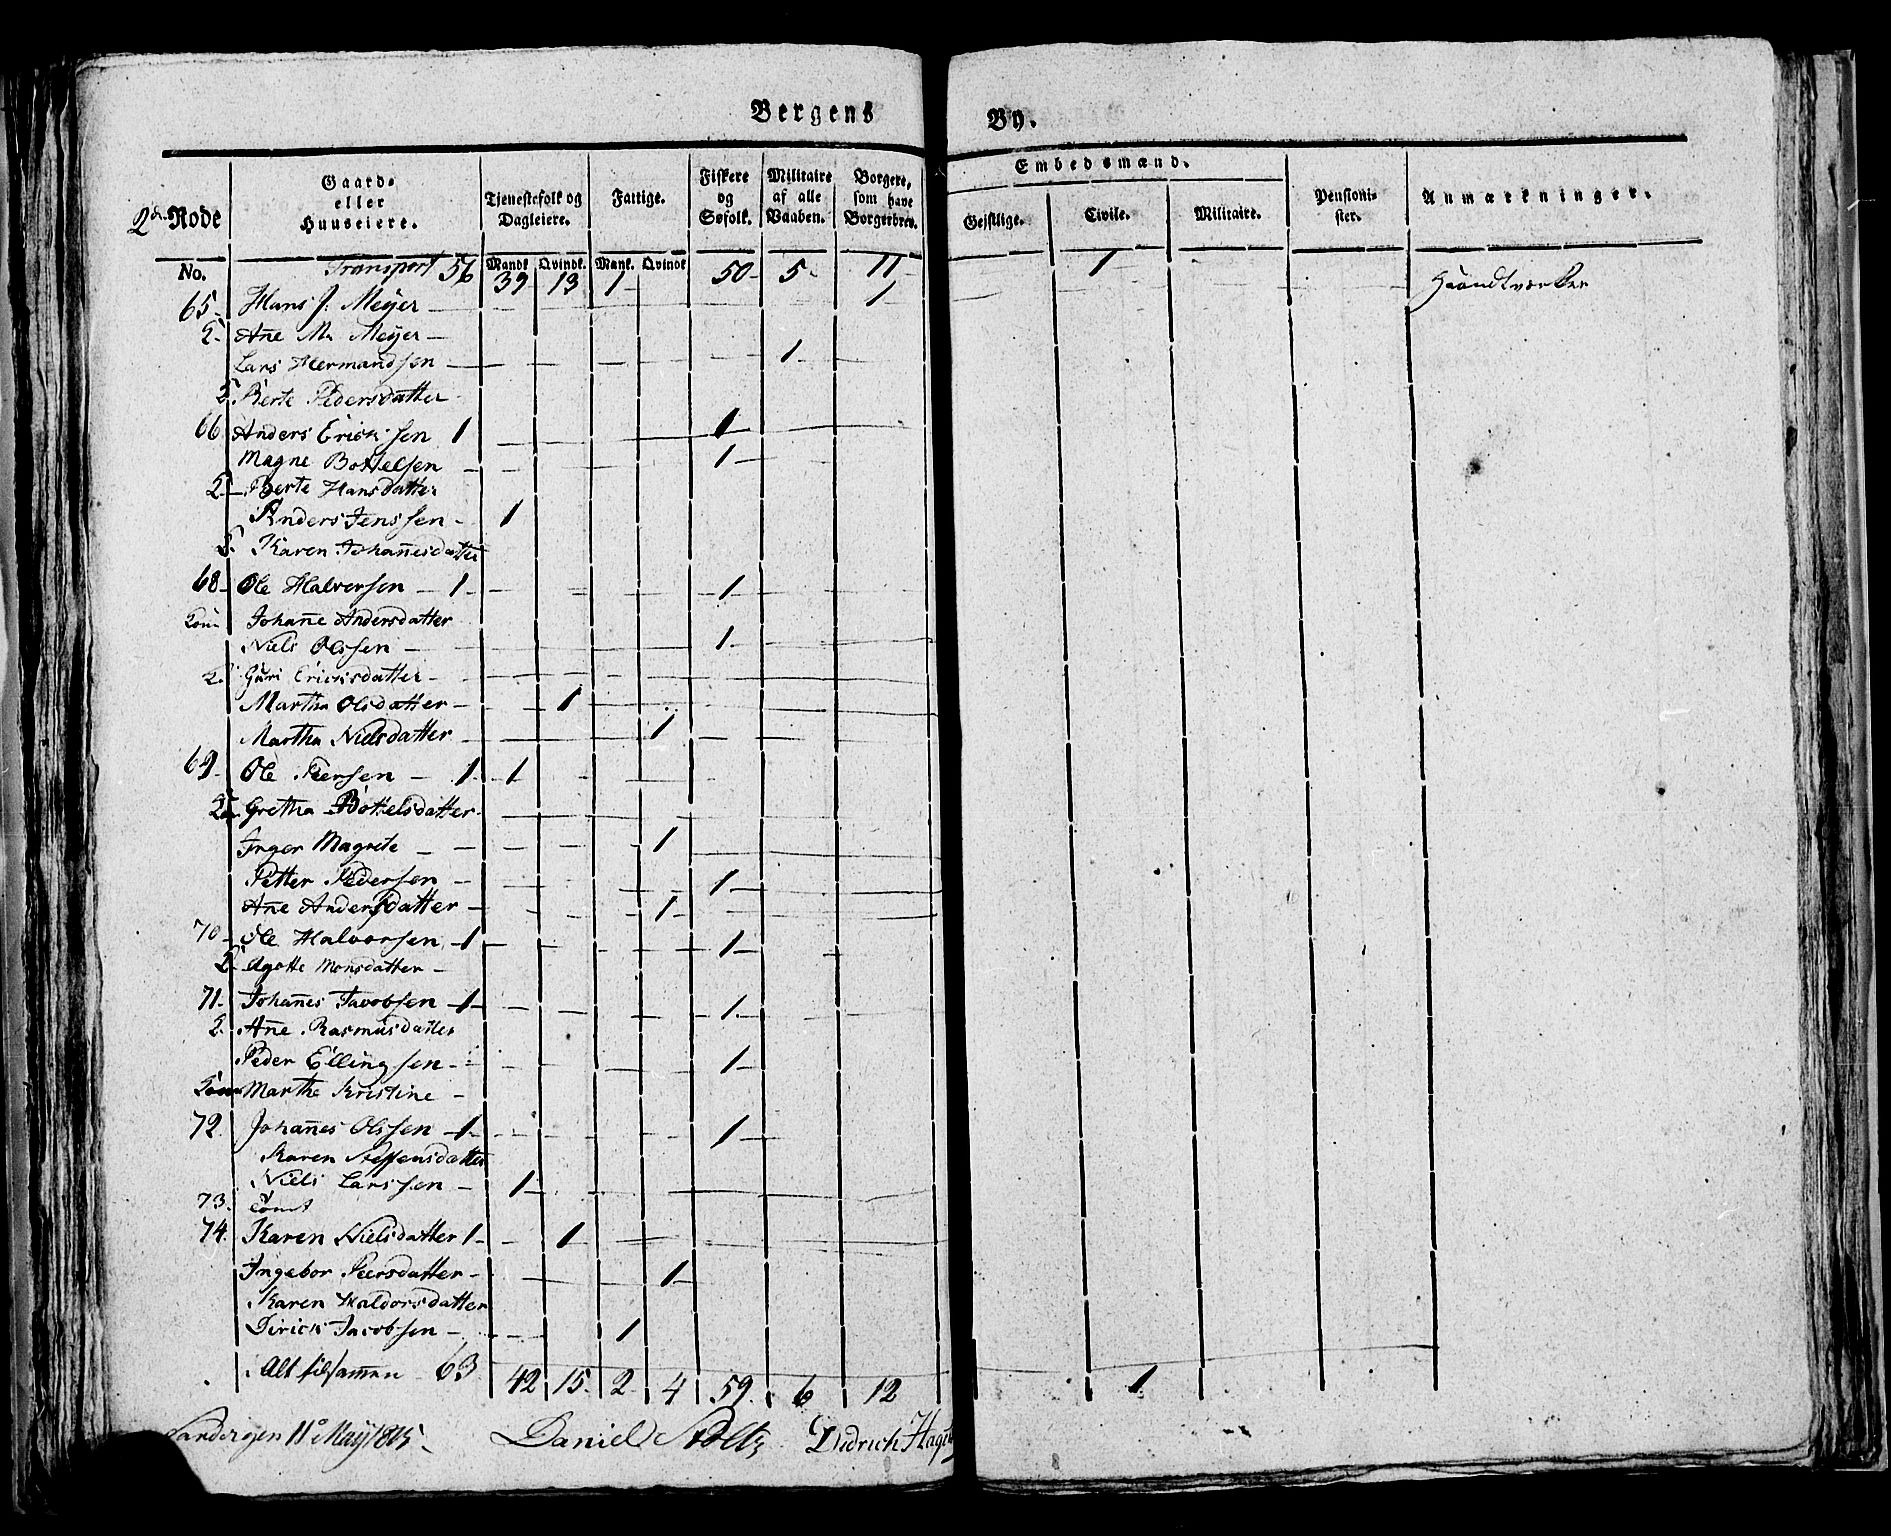 Bergens By.
2den Rode
Gaard- eller Huuseiere.
Tjenestefolk og Dagleiere.
Fattige.
Fiskere og Søfolk.
Militaire af alle Vaaben.
Borgere, som have Borgerbrev.
Embedsmænd.
Geistlige.
Civile.
Militaire.
Pensionister.
Anmærkninger.
No. Mandk Qvindk. Mank. Qvindk
Transport 56 39 13 1 50 5 11 1
65 Hans J. Meyer 1 Haandtværker
2. Ane M. Meyer
Lars Hermandsen 1
2. Berte Pedersdatter
66 Anders Ericksen 1 1
Magne Bottelsen 1
2 Berte Hansdatter
Anders Jenssen 1
2. Karen Johanesdatter
68 Ole Halversen 1 1
Johane Andersdatter
Niels Olssen 1
2. Guri Ericksdatter
Martha Olsdatter 1
Martha Nielsdatter 1
69 Ole Peersen 1 1
Gretha Bottelsdatter
Inger Magrete 1
Petter Pedersen 1
Ane Andersdatter 1
70 Ole Halvorsen 1 1
2. Agotte Monsdatter
71. Johanes Jacobsen 1 1
2. Ane Rasmusdatter
Peder Ellingsen 1
Marthe Kristine
72. Johanes Olssen 1 1
Karen Steffensdatter
Niels Larssen 1
73. Tomt
74. Karen Nielsdatter 1 1
Ingebor Peersdatter 1
Karen Haldorsdatter
Dirick Jacobsen 1
Alt tilsamen 63 42 15 2 4 59 6 12 1
Sandvigen 11 May 1815 Daniel Stoltz Didrich